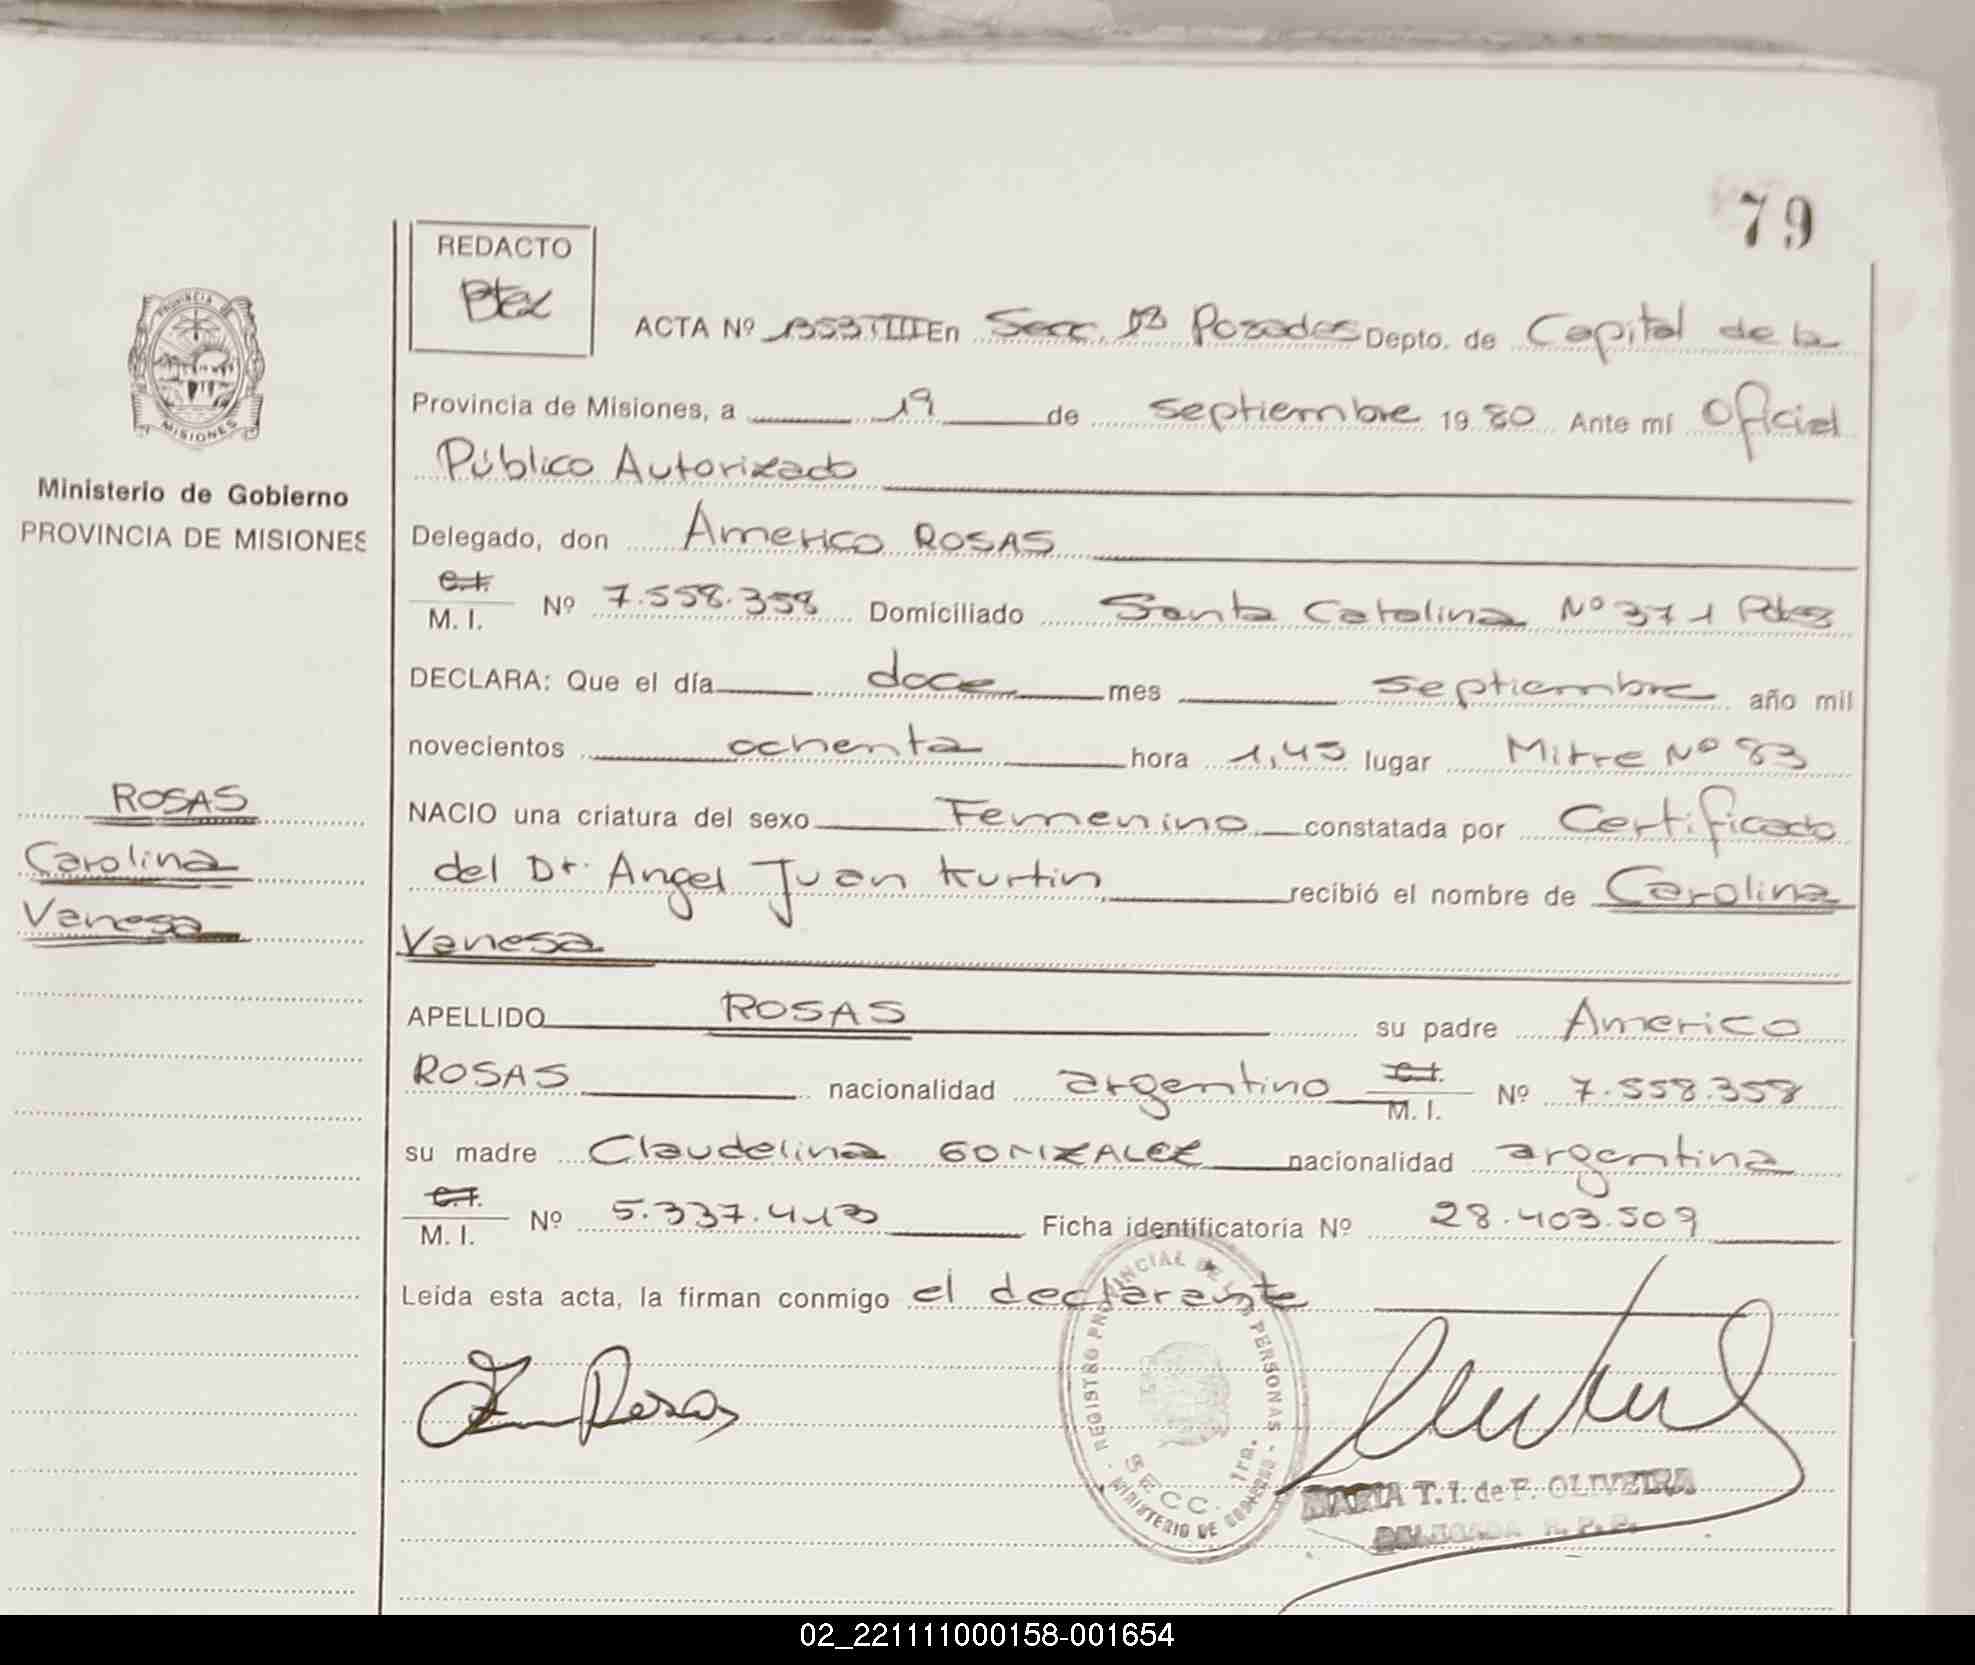 79
REDACTO
PROVINCIA
MISIONES
ACTA Nº En Secc. 1ª Posadas Depto. de Capital de la
Provincia de Misiones, a 19 de septiembre 1980 Ante mí Oficial
Público Autorizado
Ministerio de Gobierno
PROVINCIA DE MISIONES
Delegado, don Americo ROSAS
C.I. M. I. Nº 7.558.358 Domiciliado Santa Catalina Nº 371 Pdas
DECLARA: Que el día doce mes septiembre año mil
novecientos ochenta hora 1,45 lugar Mitre Nº 83
ROSAS
Carolina
Vanesa
NACIO una criatura del sexo Femenino constatada por Certificado
del Dr. Angel Juan Kurtin recibió el nombre de Carolina
Vanesa
APELLIDO ROSAS su padre Americo
ROSAS nacionalidad argentino C.I. M. I. Nº 7.558.358
su madre Claudelina GONZALEZ nacionalidad argentina
C.I. M. I. Nº Ficha identificatoria Nº 28.403.509
Leída esta acta, la firman conmigo el declarante
Rosas
REGISTRO PROVINCIAL DE LAS PERSONAS - MINISTERIO DE GOBIERNO -
SECC. 1ra.
MARIA T. I. de F. OLIVEIRA
DELEGADA R. P. P.
02_221111000158-001654